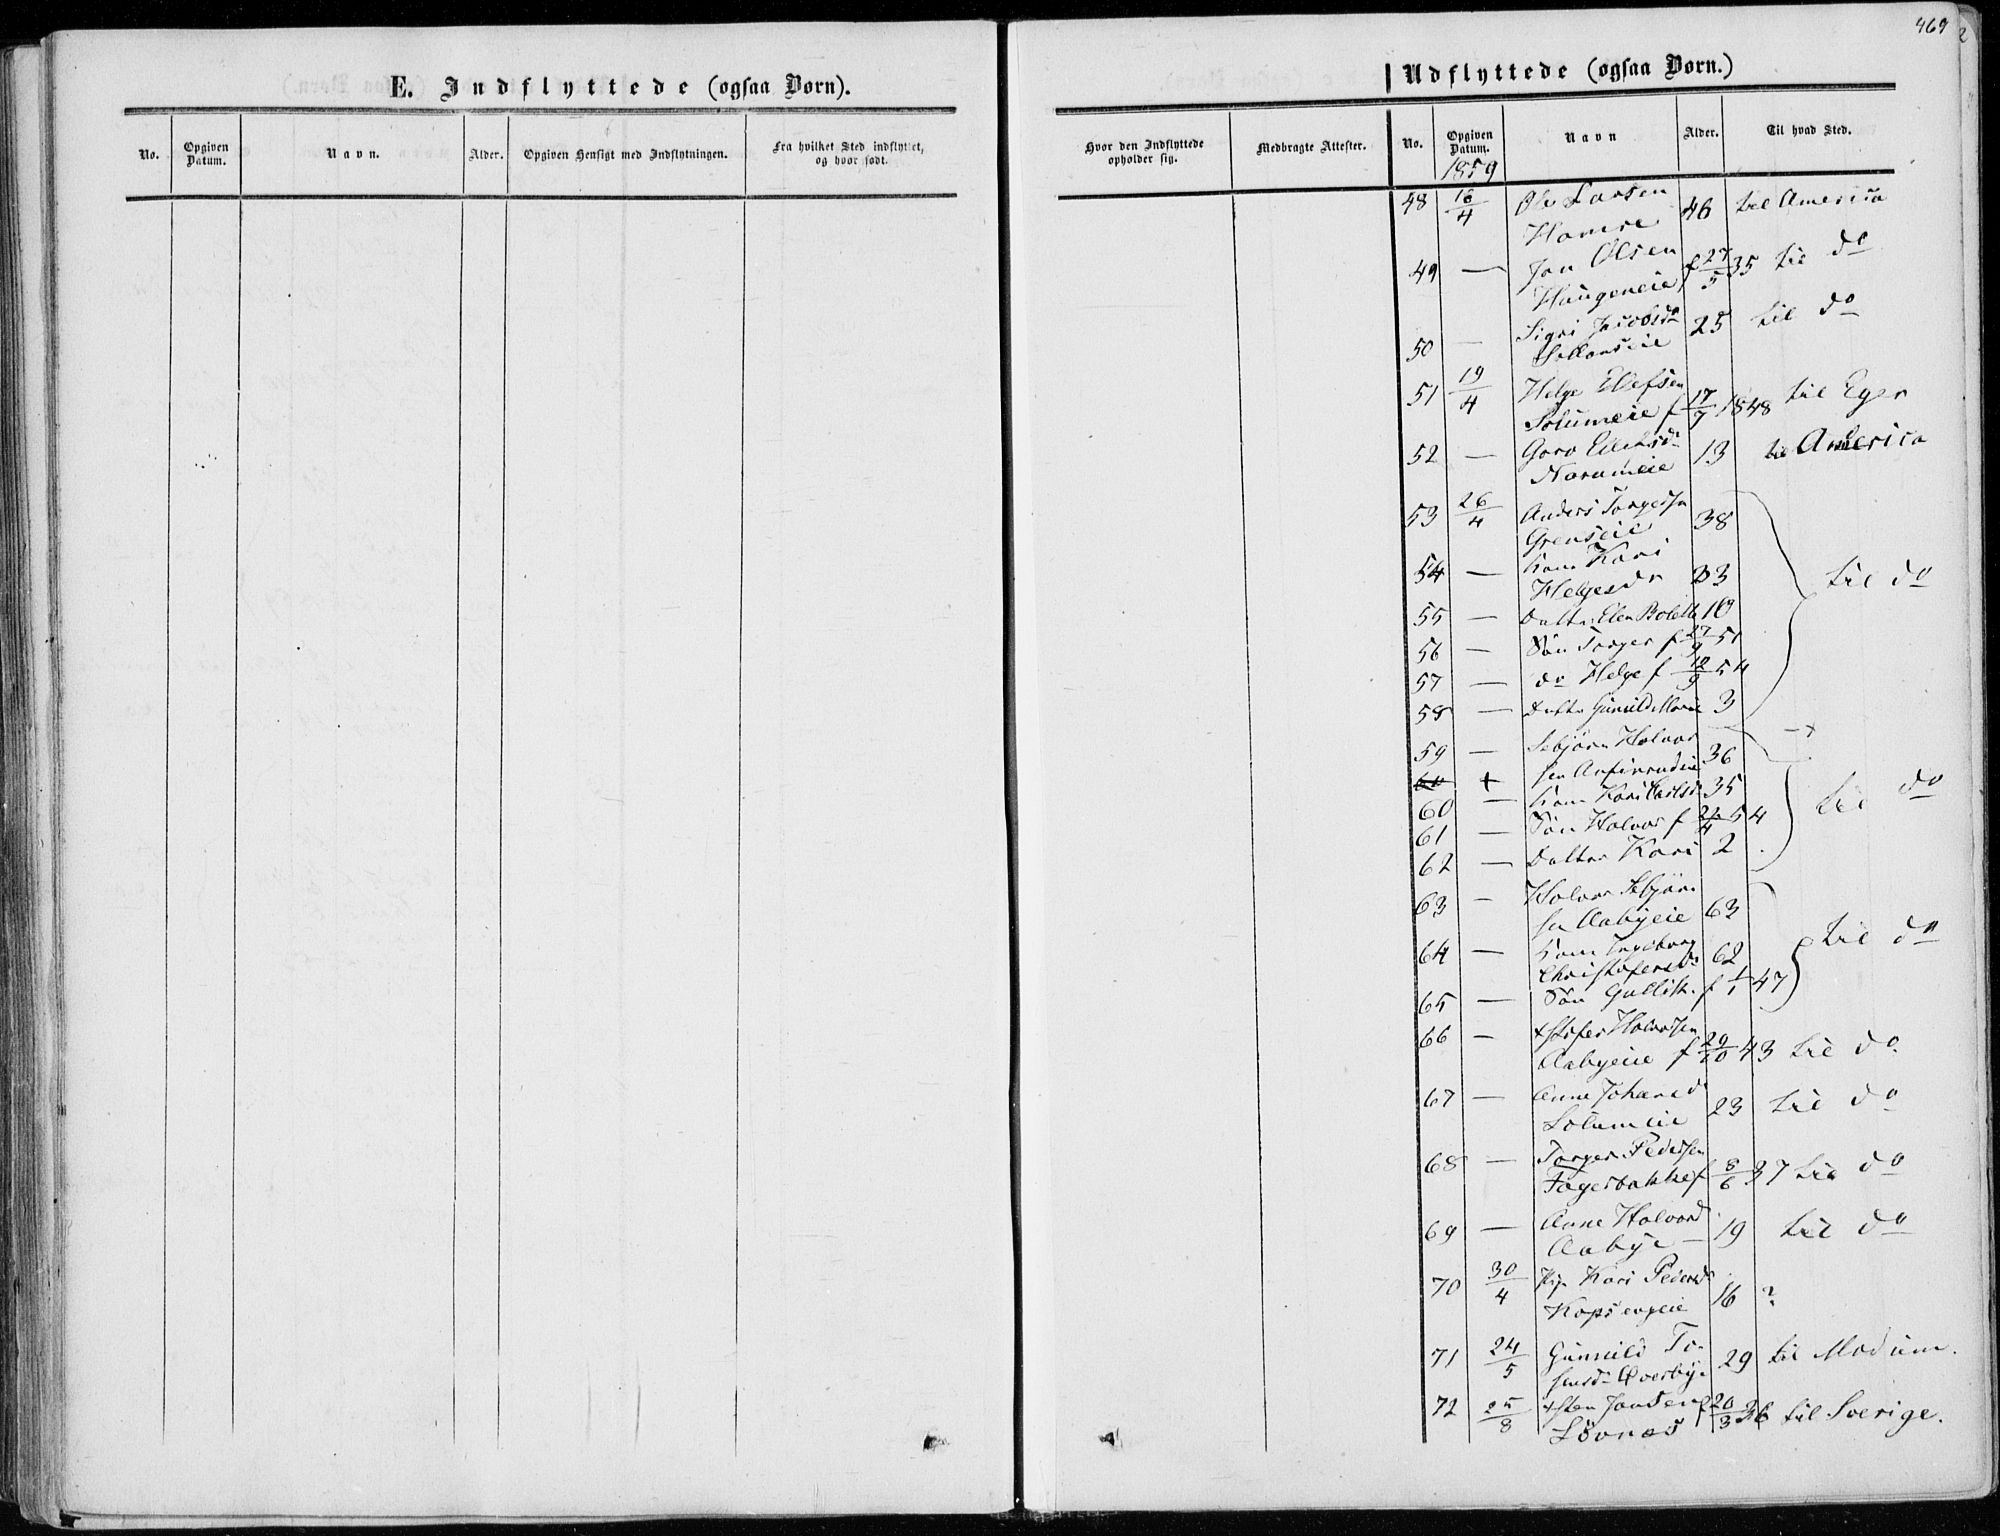 469
E. Indflyttede (ogsaa Børn).
No. Opgiven Datum. Navn. Alder. Opgiven Hensigt med Indflytningen. Fra hvilket Sted indflyttet, og hvor født.
Udflyttede (ogsaa Børn.)
Hvor den Indflyttede opholder sig. Medbragte Attester. No. Opgiven Datum. Navn Alder. Til hvad Sted.
1859
48 16/4 Ole Larsen 46 til America
Hamre
49 — Jon Olsen f 27/5 35 til do
Haugeneie
50 — Sigri Jacobsdr 25 til do
51 19/4 Helge Ellefsen
Solumeie f 17/7 1848 til Eger
52 — Goro 13 til America
Norumeie
53 26/4 Anders Torgersen 38
Grenseie
54 — Kone Kari 33 til do
Helgesdr
55 — Datter Elen Bolette 10
56 — Søn Torger f 27/9 51
57 — do Helge f 12/9 54
58 — Datter Gunild Marie 3
59 — Sebjørn Halvor 36
sen Anfinrudeie
60 — Kone Kari 35 til do
61 — Søn Halvor f 4 54
62 — Datter Kari 2
63 — Halvor Sebjørn 63
sen Aabyeie
64 — Kone Ingeborg 62 til do
Christofersdr
65 — Søn Gullik f 1/1 47
66 — Xstofer Halvorsen
Aabyeie f 29/10 43 til do
67 — Anne Johansd 23 til do
Solumeie
68 — Torger Pedersen
Fagerbakke f 8/6 37 til do
69 — Anne Halvord 19 til do
Aabye
70 30/4 Pige Kari Pedersd 16 ?
Kopsengeie
71 24/5 Gunild To- 29 til Modum.
Overby
72 25/8 Xsten Jansen f 20/3 36 til Sverige.
Løvnes